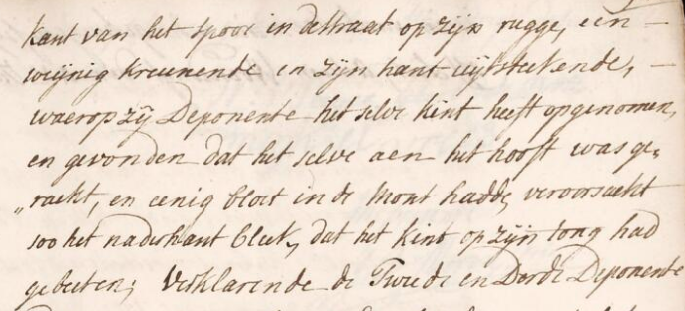 kant van het spoor in de straat op zijn rugge, een –
weijnig kreunende en zijn hant uijtsteekende, –
waerop zij Deponente het selve kint heeft opgenomen,
en gevonden dat het selve aen het hooft was ge„
„raekt, en eenig bloet in de mont hadde, veroorsaekt
soo het naderhant bleek, dat het kint op zijn tong had
gebeeten; Verklarende de Tweede en Derde Deponente